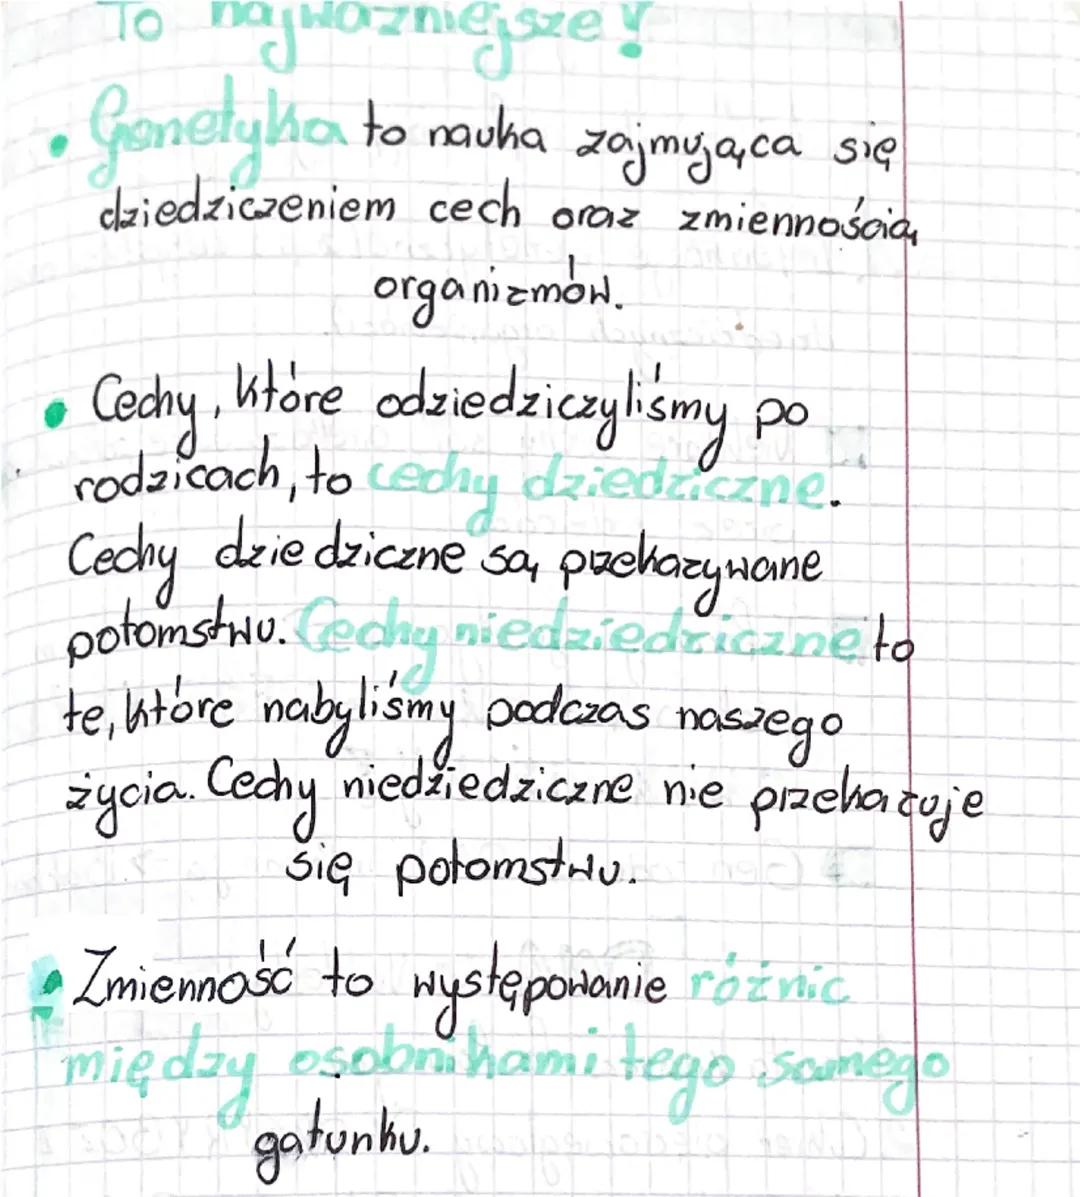 To najważniejsze!
• Genetyka to nauka zajmująca się
dziedziczeniem cech oraz zmiennością
organizmów.
• Cechy, które odziedziczyliśmy po
rodzicach, to cechy dziedziczne.
Cechy dziedziczne są przekazywane
potomstwu. Cechy niedziedziczne to
te, które nabyliśmy podczas naszego
życia. Cechy niedziedziczne nie przekazuje
się potomstwu.
• Zmienność to występowanie różnic
między osobnikami tego samego
gatunku.